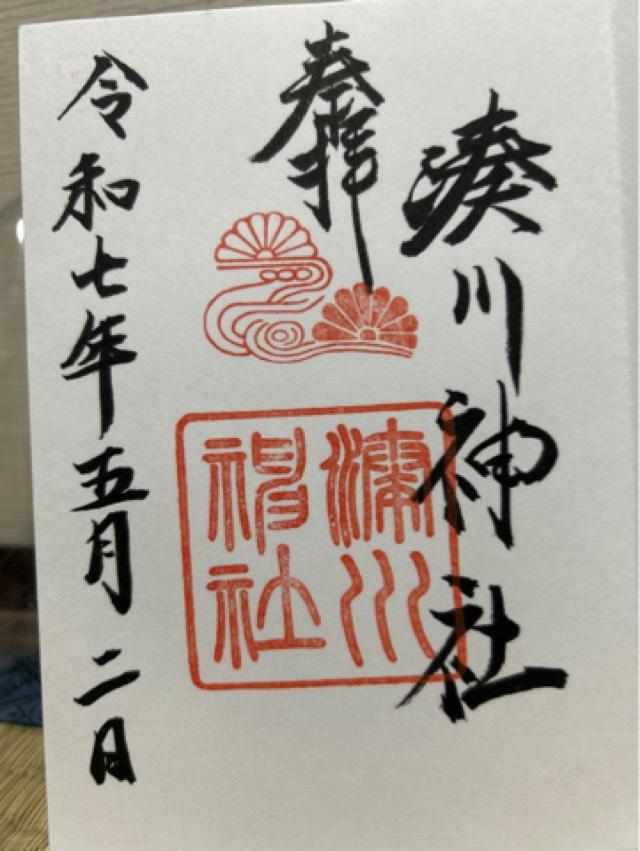 湊川神社
奉拝
湊川
神社
令和七年五月二日